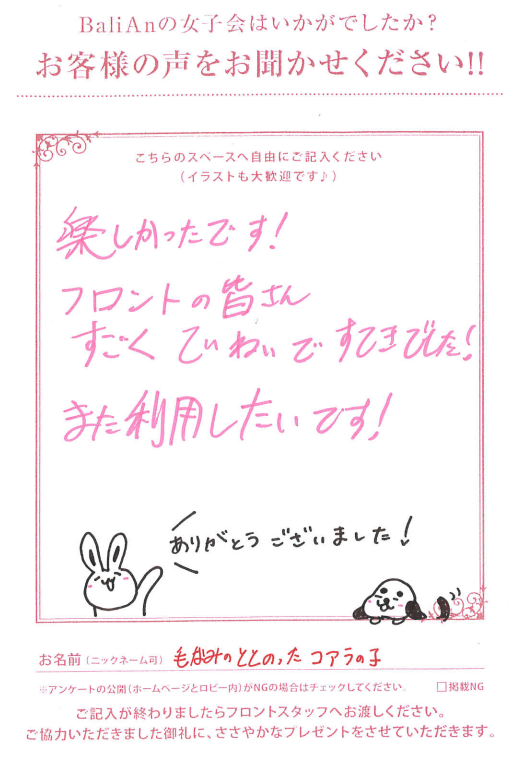 BaliAnの女子会はいかがでしたか?
お客様の声をお聞かせください!!
こちらのスペースへ自由にご記入ください
(イラストも大歓迎です♪)
楽しかったです!
フロントの皆さん
すごく ていねいで すてきでした!
また利用したいです!
ありがとうございました!
お名前(ニックネーム可) 毛なみのととのった コアラの子
※アンケートの公開(ホームページとロビー内)がNGの場合はチェックしてください。 □掲載NG
ご記入が終わりましたらフロントスタッフへお渡しください。
ご協力いただきました御礼に、ささやかなプレゼントをさせていただきます。